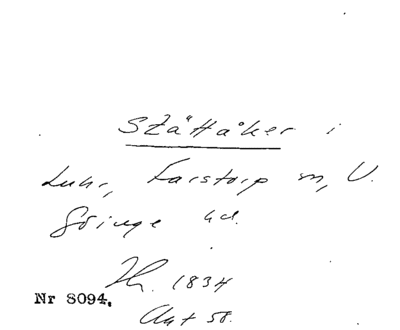 Slättåker i
Luhr, Farstorp sn, V.
Göinge hd.
Th. 1834
Nr 8094.
Akt 58.